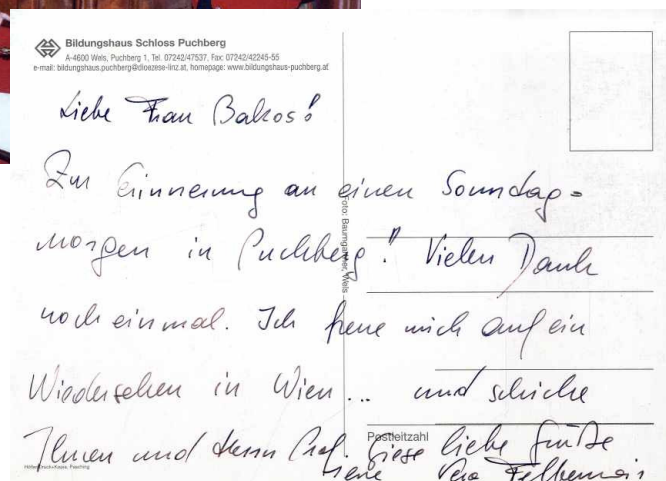 Bildungshaus Schloss Puchberg
A-4600 Wels, Puchberg 1, Tel. 07242/47537, Fax: 07242/42245-55
e-mail: bildungshaus.puchberg@dioezese-linz.at, homepage: www.bildungshaus-puchberg.at
Liebe Frau Bakos!
Zur Erinnerung an einen Sonntag=
morgen in Puchberg! Vielen Dank
noch einmal. Ich freue mich auf ein
Wiedersehen in Wien... und schicke
Ihnen und Herrn Prof. Giese liebe Grüße
Vera
Foto: Baumgartner, Wels
Postleitzahl